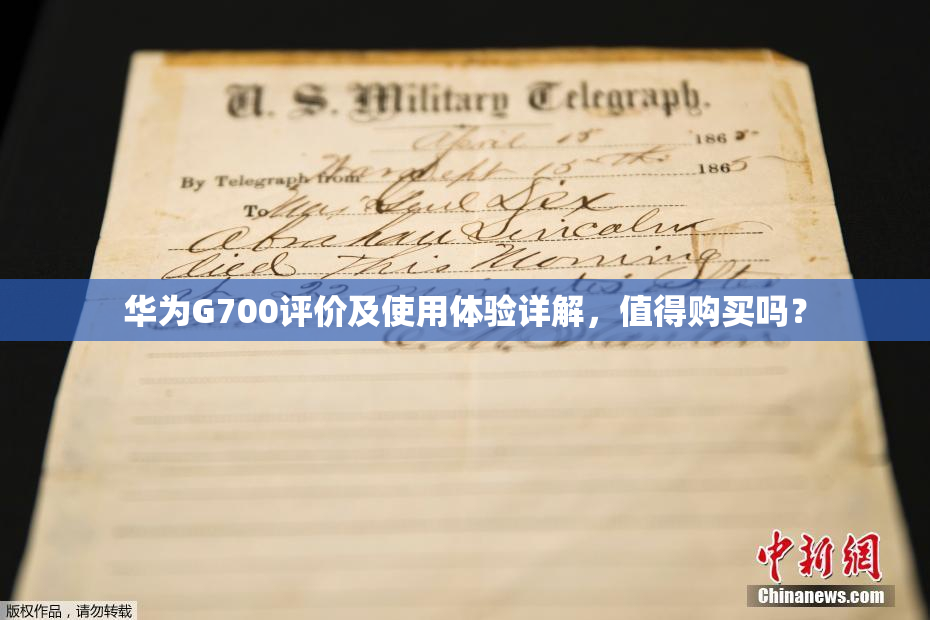 U. S. Military Telegraph.
April 15 1865
By Telegraph from War Dept 15th 1865
To Maj Genl Dix
Abraham Lincoln
died This Morning
at 22 minutes after
华为G700评价及使用体验详解，值得购买吗？
E. M. Stanton
中新网
Chinanews.com
版权作品，请勿转载